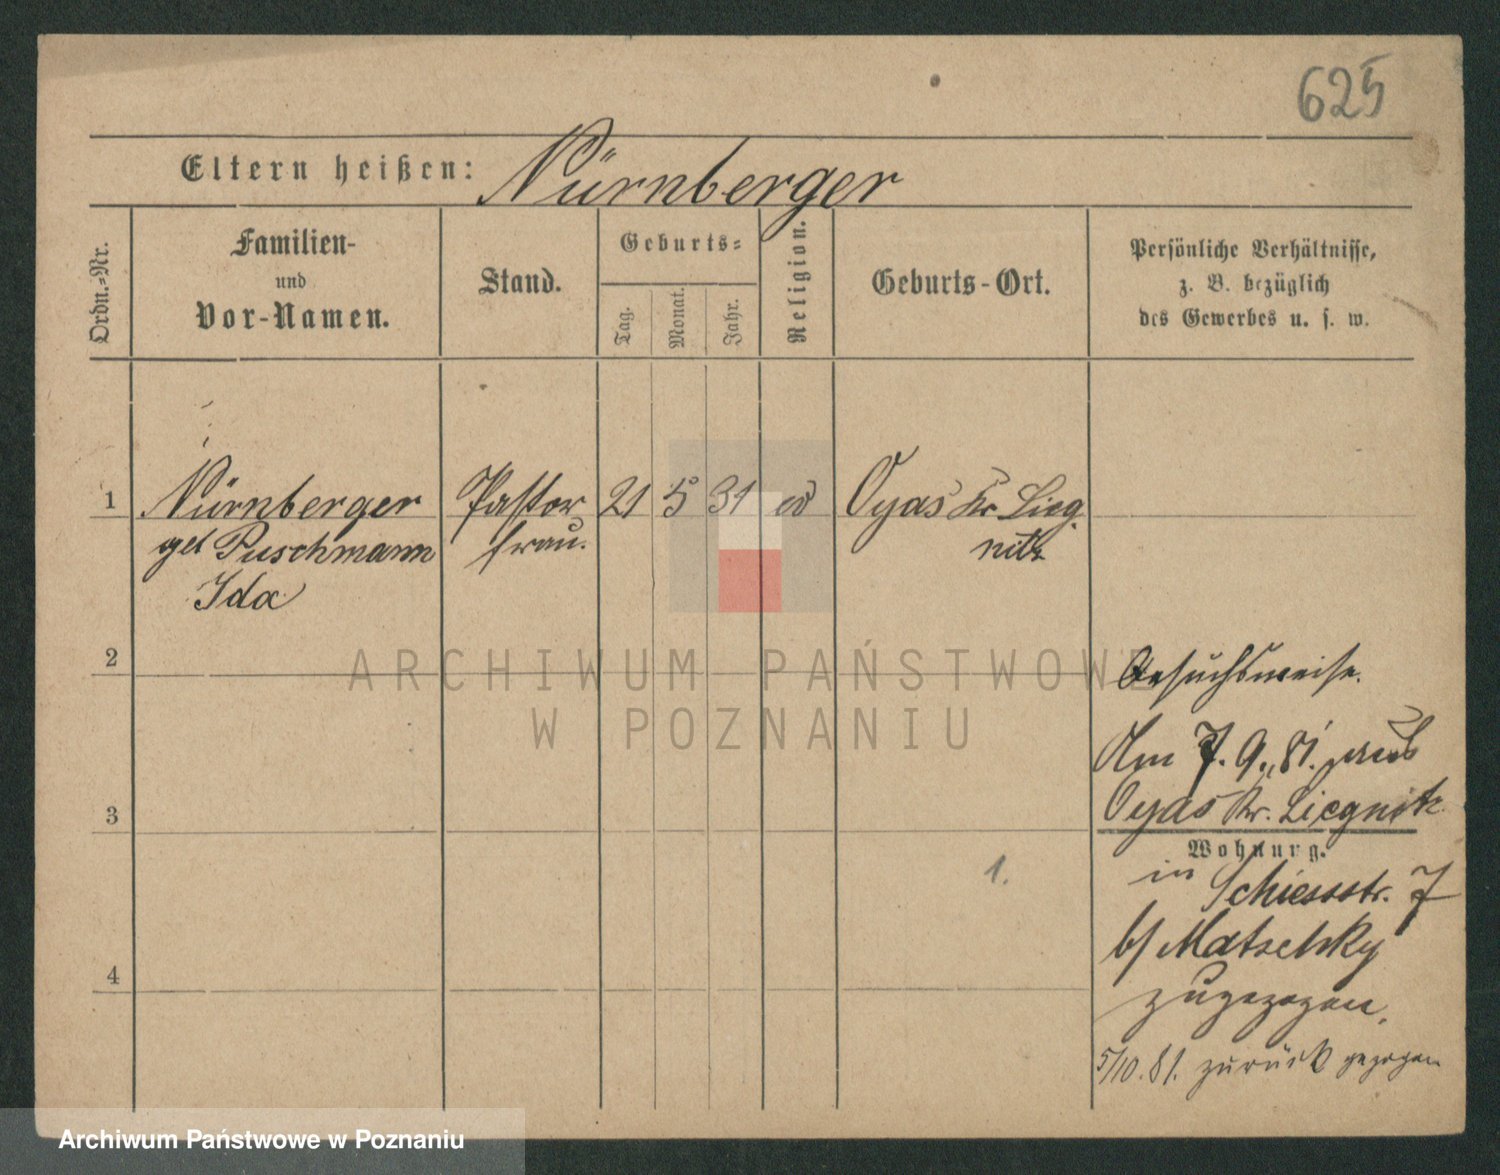 625
Eltern heißen: Nürnberger
Ordn.-Nr.
Familien-
und
Vor-Namen.
Stand.
Geburts-
Tag.
Monat.
Jahr.
Religion.
Geburts-Ort.
Persönliche Verhältnisse,
z. B. bezüglich
des Gewerbes u. s. w.
1 Nürnberger Pastor 21 5 31 ev Oyas Kr Lieg
geb Puschmann frau. nitz
Ida
2
Besuchsweise.
Am 7. 9. 81. aus
Oyas Kr. Liegnitz
3
Wohnung.
1.
in Schiessstr. 7
b/ Matschky
4
zugezogen.
5/10. 81. zurück gezogen
ARCHIWUM PAŃSTWOWE
W POZNANIU
Archiwum Państwowe w Poznaniu